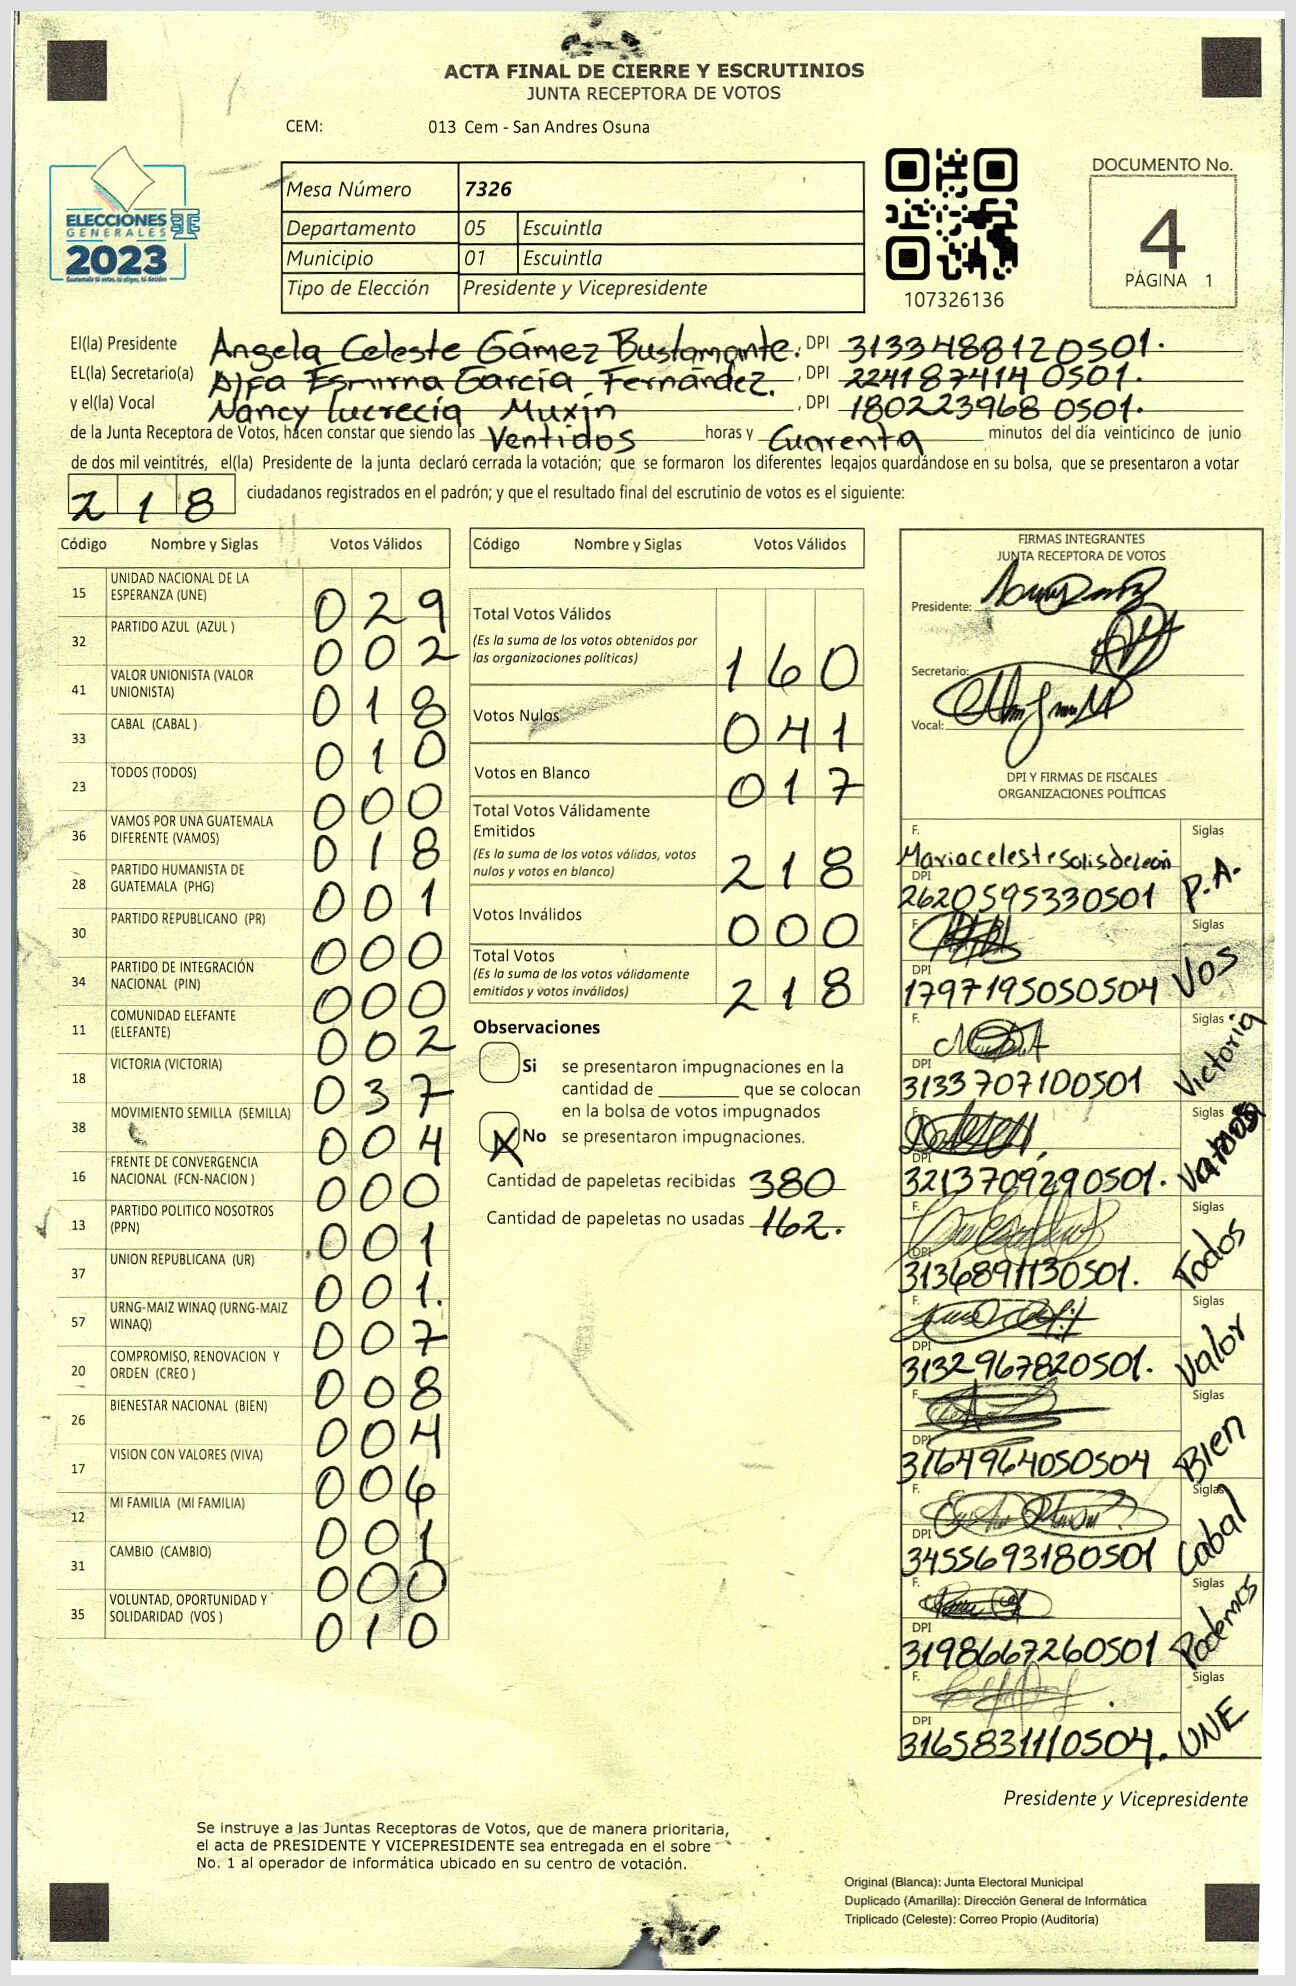 ACTA FINAL DE CIERRE Y ESCRUTINIOS
JUNTA RECEPTORA DE VOTOS
CEM: 013 Cem - San Andres Osuna
ELECCIONES
GENERALES
2023
Guatemala tú votas, tú eliges, tú decides
Mesa Número 7326
Departamento 05 Escuintla
Municipio 01 Escuintla
Tipo de Elección Presidente y Vicepresidente
107326136
DOCUMENTO No.
4
PÁGINA 1
El(la) Presidente Angela Celeste Gámez Bustamante. , DPI 3133488120501.
EL(la) Secretario(a) Alfa Esmirna García Fernández. , DPI 2241874140501.
y el(la) Vocal Nancy Lucrecia Muxin , DPI 1802239680501.
de la Junta Receptora de Votos, hacen constar que siendo las Ventidos horas y Cuarenta minutos del día veinticinco de junio
de dos mil veintitrés, el(la) Presidente de la junta declaró cerrada la votación; que se formaron los diferentes legajos guardándose en su bolsa, que se presentaron a votar
218 ciudadanos registrados en el padrón; y que el resultado final del escrutinio de votos es el siguiente:
Código Nombre y Siglas Votos Válidos
15 UNIDAD NACIONAL DE LA
ESPERANZA (UNE) 029
32 PARTIDO AZUL (AZUL ) 002
41 VALOR UNIONISTA (VALOR
UNIONISTA) 018
33 CABAL (CABAL ) 010
23 TODOS (TODOS) 000
36 VAMOS POR UNA GUATEMALA
DIFERENTE (VAMOS) 018
28 PARTIDO HUMANISTA DE
GUATEMALA (PHG) 001
30 PARTIDO REPUBLICANO (PR) 000
34 PARTIDO DE INTEGRACIÓN
NACIONAL (PIN) 000
11 COMUNIDAD ELEFANTE
(ELEFANTE) 002
18 VICTORIA (VICTORIA) 037
38 MOVIMIENTO SEMILLA (SEMILLA) 004
16 FRENTE DE CONVERGENCIA
NACIONAL (FCN-NACION ) 000
13 PARTIDO POLITICO NOSOTROS
(PPN) 001
37 UNION REPUBLICANA (UR) 001.
57 URNG-MAIZ WINAQ (URNG-MAIZ
WINAQ) 007
20 COMPROMISO, RENOVACION Y
ORDEN (CREO ) 008
26 BIENESTAR NACIONAL (BIEN) 004
17 VISION CON VALORES (VIVA) 006
12 MI FAMILIA (MI FAMILIA) 001
31 CAMBIO (CAMBIO) 000
35 VOLUNTAD, OPORTUNIDAD Y
SOLIDARIDAD (VOS ) 010
Código Nombre y Siglas Votos Válidos
Total Votos Válidos
(Es la suma de los votos obtenidos por
las organizaciones políticas) 160
Votos Nulos 041
Votos en Blanco 017
Total Votos Válidamente
Emitidos
(Es la suma de los votos válidos, votos
nulos y votos en blanco) 218
Votos Inválidos 000
Total Votos
(Es la suma de los votos válidamente
emitidos y votos inválidos) 218
Observaciones
Si se presentaron impugnaciones en la
cantidad de ________ que se colocan
en la bolsa de votos impugnados
X No se presentaron impugnaciones.
Cantidad de papeletas recibidas 380
Cantidad de papeletas no usadas 162.
FIRMAS INTEGRANTES
JUNTA RECEPTORA DE VOTOS
Presidente:
Secretario:
Vocal:
DPI Y FIRMAS DE FISCALES
ORGANIZACIONES POLÍTICAS
F. Siglas
Maria celeste Solis de León
DPI
2620595330501 P.A.
F. Siglas
DPI
1797195050504 Vos
F. Siglas
DPI
3133707100501 Victoria
F. Siglas
DPI
3213709290501. Vamos
F. Siglas
DPI
3136891130501. Todos
F. Siglas
DPI
3132967820501. Valor
F. Siglas
DPI
3164964050504 Bien
F. Siglas
DPI
3455693180501 Cabal
F. Siglas
DPI
3198667260501 Podemos
F. Siglas
DPI
3165831110504. UNE
Presidente y Vicepresidente
Se instruye a las Juntas Receptoras de Votos, que de manera prioritaria,
el acta de PRESIDENTE Y VICEPRESIDENTE sea entregada en el sobre
No. 1 al operador de informática ubicado en su centro de votación.
Original (Blanca): Junta Electoral Municipal
Duplicado (Amarilla): Dirección General de Informática
Triplicado (Celeste): Correo Propio (Auditoría)